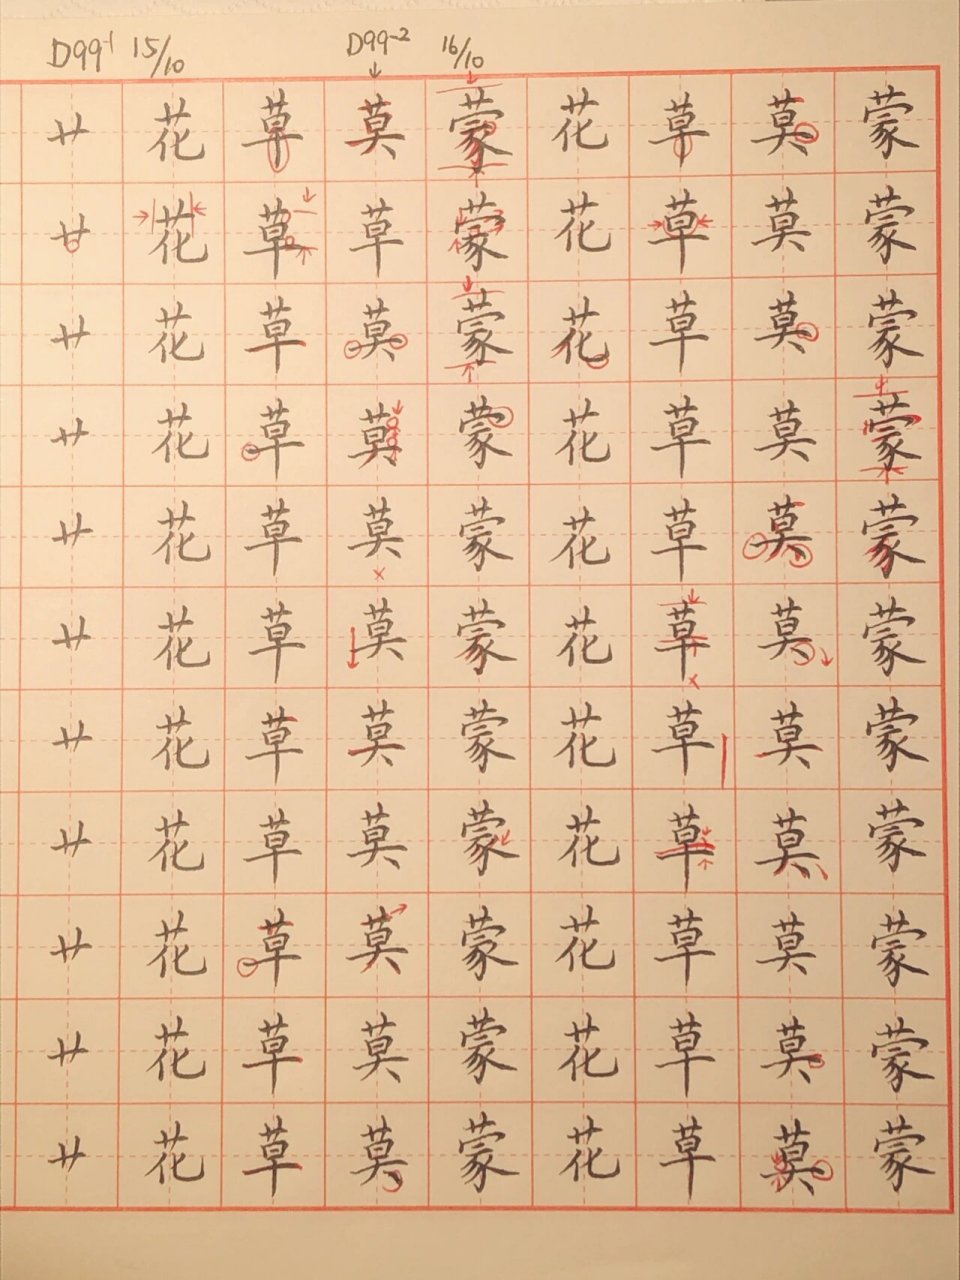 D99-1 15/10 D99-2 16/10
艹 花 草 莫 蒙 花 草 莫 蒙
艹 花 草 草 蒙 花 草 莫 蒙
艹 花 草 莫 蒙 花 草 莫 蒙
艹 花 草 莫 蒙 花 草 莫 蒙
艹 花 草 莫 蒙 花 草 莫 蒙
艹 花 草 莫 蒙 花 草 莫 蒙
艹 花 草 莫 蒙 花 草 莫 蒙
艹 花 草 莫 蒙 花 草 莫 蒙
艹 花 草 莫 蒙 花 草 莫 蒙
艹 花 草 莫 蒙 花 草 莫 蒙
艹 花 草 莫 蒙 花 草 莫 蒙